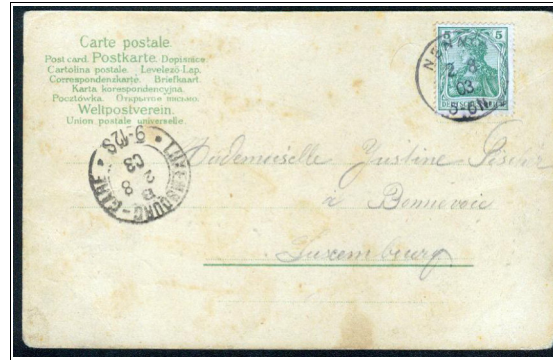 Carte postale.
Post card. Postkarte. Dopisnice.
Cartolina postale. Levelező-Lap.
Correspondenzkarte. Briefkaart.
Karta korespondencyjna.
Pocztówka. Открытое письмо.
Weltpostverein.
Union postale universelle.
5 5
2 8
03
5-6N.
LUXEMBOURG-GARE
8
03
9-12S
Mademoiselle Justine
à Bonnevoie
Luxemburg